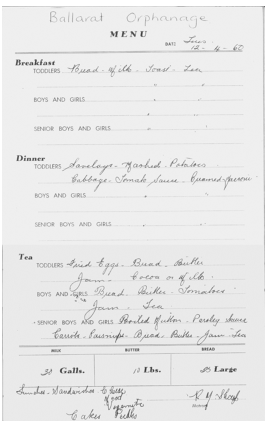 Ballarat Orphanage
MENU
DATE Tues
12-4-60
Breakfast
TODDLERS Bread - Milk - Toast - Tea
" "
BOYS AND GIRLS " "
SENIOR BOYS AND GIRLS " "
Dinner
TODDLERS Saveloys - Mashed - Potatoes
Cabbage - Tomato Sauce - Creamed
BOYS AND GIRLS "
SENIOR BOYS AND GIRLS "
Tea
TODDLERS Fried Eggs - Bread - Butter
Jam - Cocoa or Milk
BOYS AND GIRLS Bread - Butter - Tomatoes
Jam - Tea
SENIOR BOYS AND GIRLS Boiled Mutton - Parsley Sauce
Carrots - Parsnips - Bread - Butter - Jam - Tea
MILK BUTTER BREAD
Galls. Lbs. Large
Lunches - Sandwiches Cheese
Vegemite
Cakes